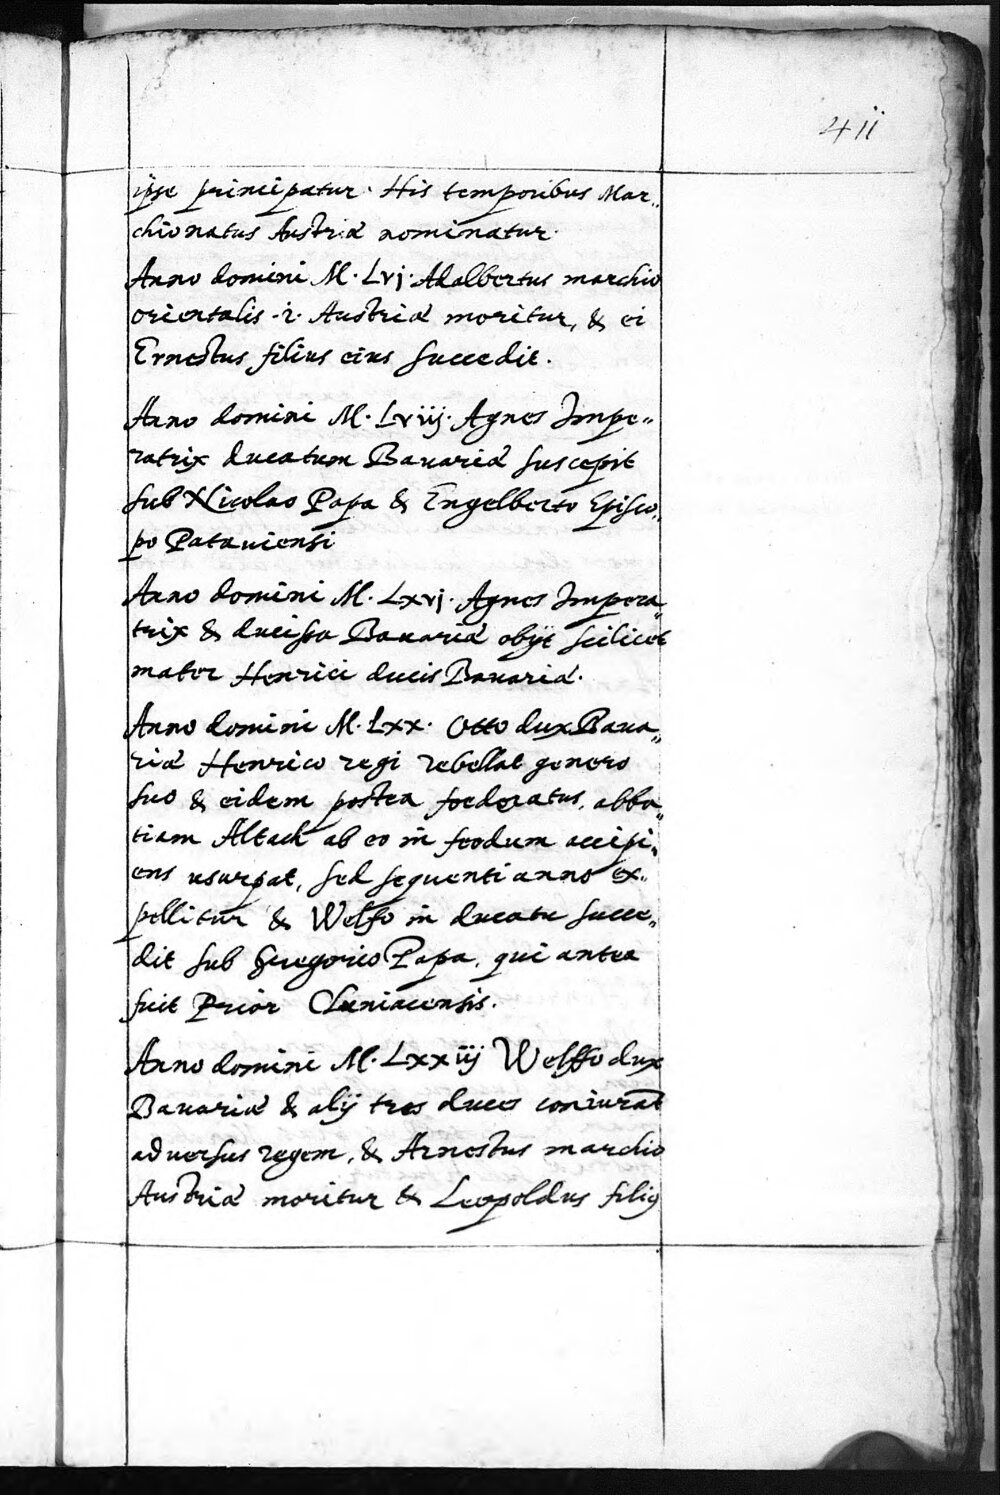 411
ipse principatur. His temporibus Mar„
chionatus Austriæ nominatur.
Anno domini M. Lvj. Adalbertus marchio
orientalis .i. Austriæ moritur, & ei
Ernestus filius eius succedit.
Anno domini M. Lviij. Agnes Impe„
ratrix ducatum Bauariæ suscepit
sub Nicolao Papa & Engelberto Episco„
po Patauiensi
Anno domini M. Lxvj. Agnes Impera„
trix & ducissa Bauariæ obijt scilicet
mater Henrici ducis Bauariæ.
Anno domini M. Lxx. Otto dux Baua„
riæ Henrico regi rebellat genero
suo & eidem postea foederatus, abba„
tiam Altach ab eo in feodum accipi„
ens usurpat, sed sequenti anno ex„
pellitur & Welfo in ducatu succe„
dit sub Gregorio Papa, qui antea
fuit Prior Cluniacensis.
Anno domini M. Lxxiij Welffo dux
Bauariæ & alij tres duces coniurāt
aduersus regem, & Arnestus marchio
Austriæ moritur & Leopoldus filiꝰ